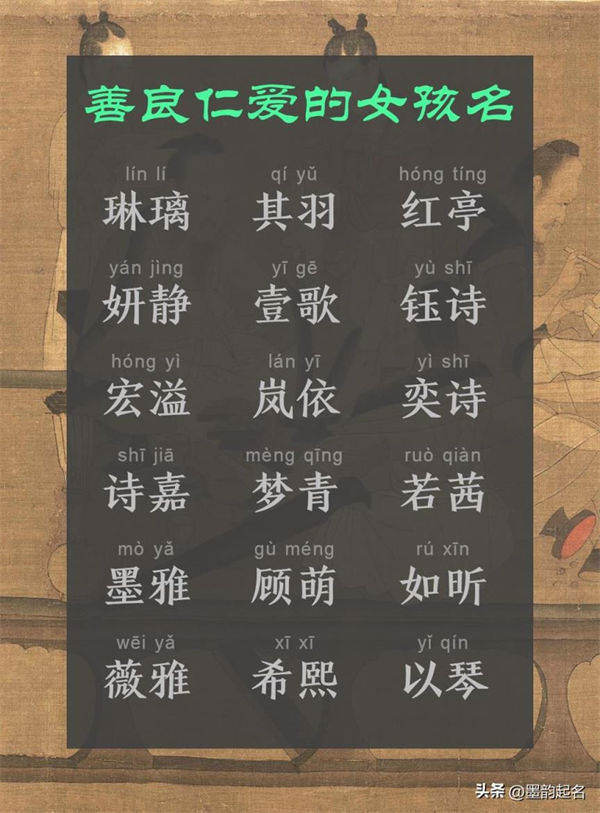 善良仁爱的女孩名
lín lí qí yǔ hóng tíng
琳璃 其羽 红亭
yán jìng yī gē yù shī
妍静 壹歌 钰诗
hóng yì lán yī yì shī
宏溢 岚依 奕诗
shī jiā mèng qīng ruò qiàn
诗嘉 梦青 若茜
mò yǎ gù méng rú xīn
墨雅 顾萌 如昕
wēi yǎ xī xī yǐ qín
薇雅 希熙 以琴
头条 @墨韵起名